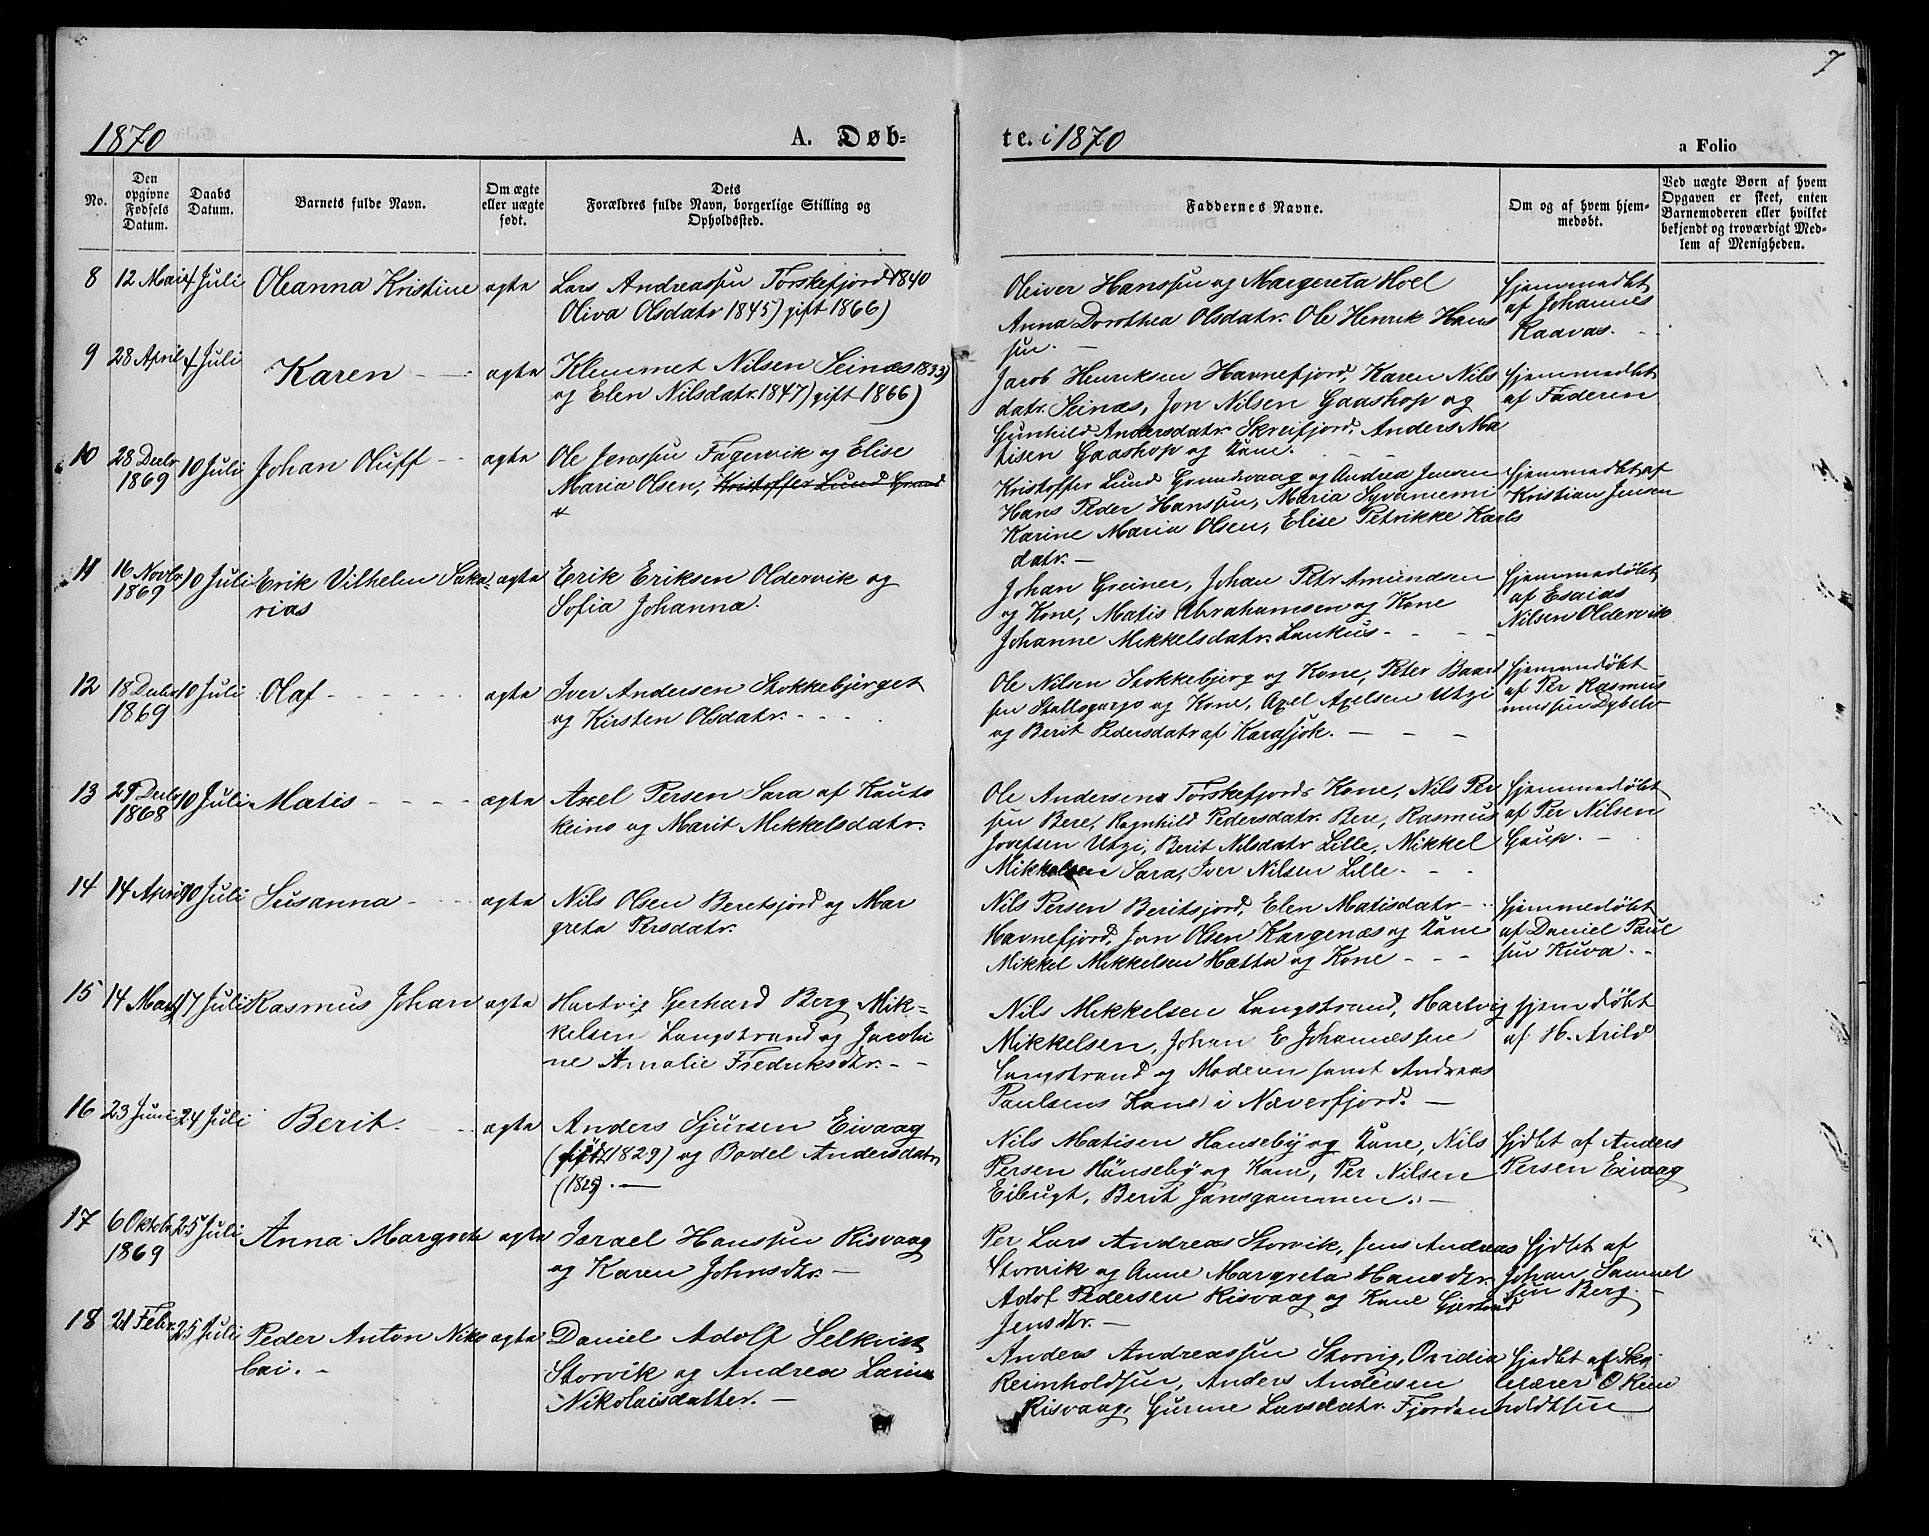 7
1870 A. Døb-
te. i 1870 a Folio
No.
Den opgivne Fødsels Datum.
Daabs Datum.
Barnets fulde Navn.
Om ægte eller uægte født.
Dets Forældres fulde Navn, borgerlige Stilling og Opholdssted.
Faddernes Navne.
Om og af hvem hjemmedøbt.
Ved uægte Børn af hvem Opgaven er skeet, enten Barnemoderen eller hvilket bekjendt og troværdigt Medlem af Menigheden.
8 12 Mai 4 Juli Oleanna Kristine ægte
Lars Andreassen Torskefjord 1840
Oliva Olsdatr 1845) gift 1866)
Oliver Hanssen og Margereta Hoel
Anna Dorothea Olsdatr. Ole Henrik Hans
sen. -
Hjemmedbt
af Johannes
Raavas.
9 28 April 4 Juli Karen ægte
Klemmet Nilsen Seinæs 1833)
og Elen Nilsdatr. 1847) gift 1866)
Jacob Henriksen Havnefjord, Karen Nils
datr. Seinæs, Jon Nilsen Gaashop og
Gunhild Andersdatr. Skreifjord, Anders Ma
tisen Gaashop og Kone.
Hjemmedbt
af Faderen
10 28 Decbr 1869 10 Juli Johan Oluff ægte
Ole Jenssen Fagervik og Elise
Maria Olsen, Kristoffer Lund Grund
Kristoffer Lund Grundvaag og Andrea Jensen
Hans Peder Hanssen, Maria
Karine Maria Olsen, Elise Petrikke Karls
datr. -
Hjemmedbt af
Kristian Jensen
11 16 Novbr 1869 10 Juli Erik Vilhelm Saka-
rias
ægte
Erik Eriksen Oldervik og
Sofia Johanna.
Johan Greiner, Johan Petr Amundsen
og Kone, Matis Abrahamsen og Kone
Johanne Mikkelsdatr. Laukus
Hjemmedøbt
af Esaias
Nilsen Oldervik
12 18 Decbr 1869 10 Juli Olaf ægte
Iver Andersen Stokkebjerget
og Kirsten Olsdatr.
Ole Nilsen Stokkebjerg og Kone, Peter Baard
sen Stallogargo og Kone, Axel Axelsen Utzi
og Berit Pedersdatr af Karasjok.
Hjemmedøbt
af Per Rasmus
13 29 Decbr 1868 10 Juli Matis ægte
Axel Persen Sara af Kauto
keino og Marit Mikkelsdatr.
Ole Andersens Torskefjords Kone, Nils Per
sen Bere, Ragnhild Pedersdatr. Bere, Rasmus
Josefsen Utzi, Berit Nilsdatr Lille, Mikkel
Mikkelsen Sara, Iver Nilsen Lille.
Hjemmedøbt
af Per Nilsen
Gaup.
14 14 April 10 Juli Susanna ægte
Nils Olsen Beretsjord og Mar
greta Persdatr.
Nils Persen Beritsjord, Elen Matisdatr
Havnefjord, Jon Olsen Kargenæs og Kone
Mikkel Mikkelsen Hætta og Kone
Hjemmedøbt
af Daniel Paul
sen Kuva.
15 14 Marts 17 Juli Rasmus Johan ægte
Hartvig Gerhard Berg Mik-
kelsen Langstrand og Jacobi
ne Amalie Fredriksdtr.
Nils Mikkelsen Langstrand, Hartvig
Mikkelsen, Johan E Johannessen
Langstrand og Moderen samt Andreas
Paulsens Kone i Næverfjord.
Hjemdøbt
af H. Arild
16 23 Juni 24 Juli Berit. ægte
Anders Sjursen Eivaag
(født 1829) og Bodel Andersdatr
(1825).
Nils Matisen Hønseby og Kone, Nils
Persen Hønseby og Kone, Per Nilsen
Eibugt, Berit Jansgammen.
Hjdbt af Anders
Persen Eivaag
17 6 Oktobr 1869 25 Juli Anna Margrete ægte
Israel Hanssen Risvaag
og Karen Johnsdtr.
Per Lars Andreas Storvik, Jens Andreas
Storvik og Anne Margreta Hansdtr.
Adof Pedersen Risvaag og Kone Gjertrud
Jensdtr.
Hjdbt af
Johan Samuel
sen Berg.
18 21 Febr. 25 Juli Peder Anton Niko
lai. -
ægte
Daniel Adolf Selkvist
Storvik og Andrea Larine
Nikolaisdatter.
Anders Andreassen Storvig, Ovidia
Reinholdsen, Anders Andersen
Risvaag, Gurine Larsdatr. Fjorden
Hjedbt af Sko
lelærer O Rein
holdtsen